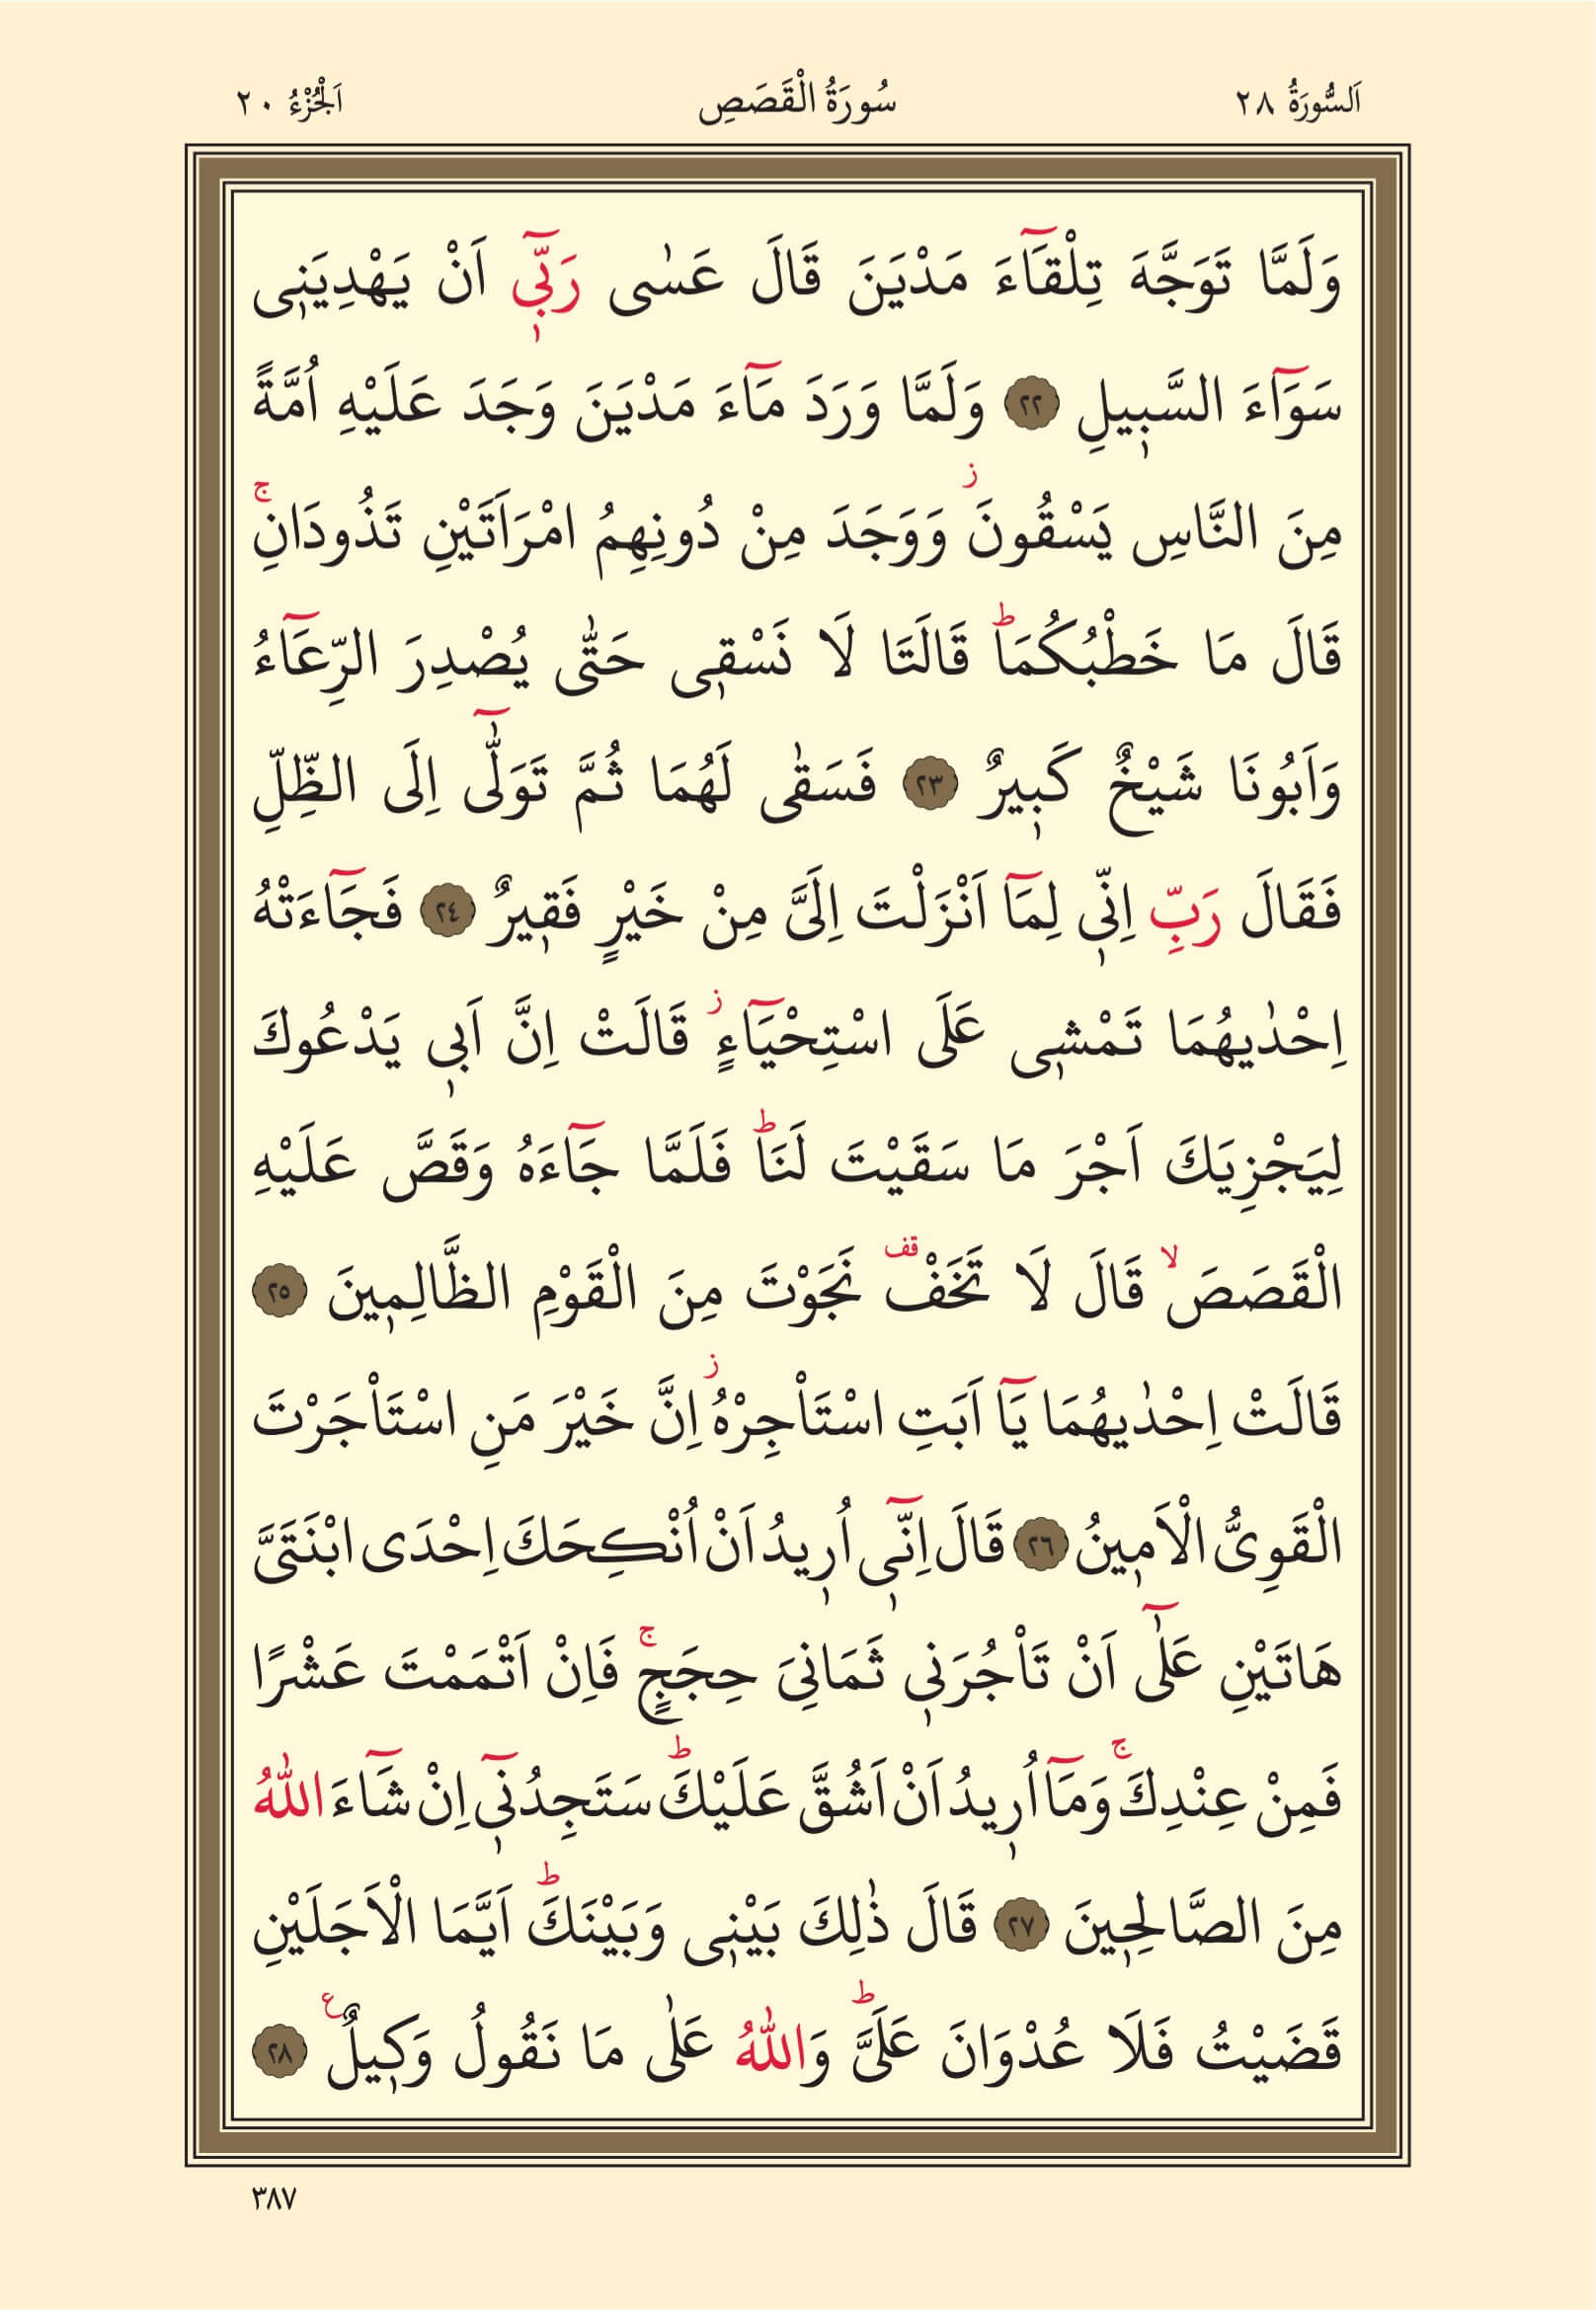 اَلسُّورَةُ ٢٨ سُورَةُ الْقَصَصِ اَلْجُزْءُ ٢٠
وَلَمَّا تَوَجَّهَ تِلْقَٓاءَ مَدْيَنَ قَالَ عَسٰى رَبّٖٓي اَنْ يَهْدِيَنٖي
سَوَٓاءَ السَّبٖيلِ ﴿٢٢﴾ وَلَمَّا وَرَدَ مَٓاءَ مَدْيَنَ وَجَدَ عَلَيْهِ اُمَّةً
مِنَ النَّاسِ يَسْقُونَؗ وَوَجَدَ مِنْ دُونِهِمُ امْرَاَتَيْنِ تَذُودَانِۚ
قَالَ مَا خَطْبُكُمَاؕ قَالَتَا لَا نَسْقٖي حَتّٰى يُصْدِرَ الرِّعَٓاءُ
وَاَبُونَا شَيْخٌ كَبٖيرٌ ﴿٢٣﴾ فَسَقٰى لَهُمَا ثُمَّ تَوَلّٰٓى اِلَى الظِّلِّ
فَقَالَ رَبِّ اِنّٖي لِمَٓا اَنْزَلْتَ اِلَيَّ مِنْ خَيْرٍ فَقٖيرٌ ﴿٢٤﴾ فَجَٓاءَتْهُ
اِحْدٰيهُمَا تَمْشٖي عَلَى اسْتِحْيَٓاءٍؗ قَالَتْ اِنَّ اَبٖي يَدْعُوكَ
لِيَجْزِيَكَ اَجْرَ مَا سَقَيْتَ لَنَاؕ فَلَمَّا جَٓاءَهُ وَقَصَّ عَلَيْهِ
الْقَصَصَۙ قَالَ لَا تَخَفْࣞ نَجَوْتَ مِنَ الْقَوْمِ الظَّالِمٖينَ ﴿٢٥﴾
قَالَتْ اِحْدٰيهُمَا يَٓا اَبَتِ اسْتَأْجِرْهُؗ اِنَّ خَيْرَ مَنِ اسْتَأْجَرْتَ
الْقَوِيُّ الْاَمٖينُ ﴿٢٦﴾ قَالَ اِنّٖٓي اُرٖيدُ اَنْ اُنْكِحَكَ اِحْدَى ابْنَتَيَّ
هَاتَيْنِ عَلٰٓى اَنْ تَأْجُرَنٖي ثَمَانِيَ حِجَجٍۚ فَاِنْ اَتْمَمْتَ عَشْرًا
فَمِنْ عِنْدِكَۚ وَمَٓا اُرٖيدُ اَنْ اَشُقَّ عَلَيْكَؕ سَتَجِدُنٖٓي اِنْ شَٓاءَ اللّٰهُ
مِنَ الصَّالِحٖينَ ﴿٢٧﴾ قَالَ ذٰلِكَ بَيْنٖي وَبَيْنَكَؕ اَيَّمَا الْاَجَلَيْنِ
قَضَيْتُ فَلَا عُدْوَانَ عَلَيَّؕ وَاللّٰهُ عَلٰى مَا نَقُولُ وَكٖيلٌࣖ ﴿٢٨﴾
٣٨٧